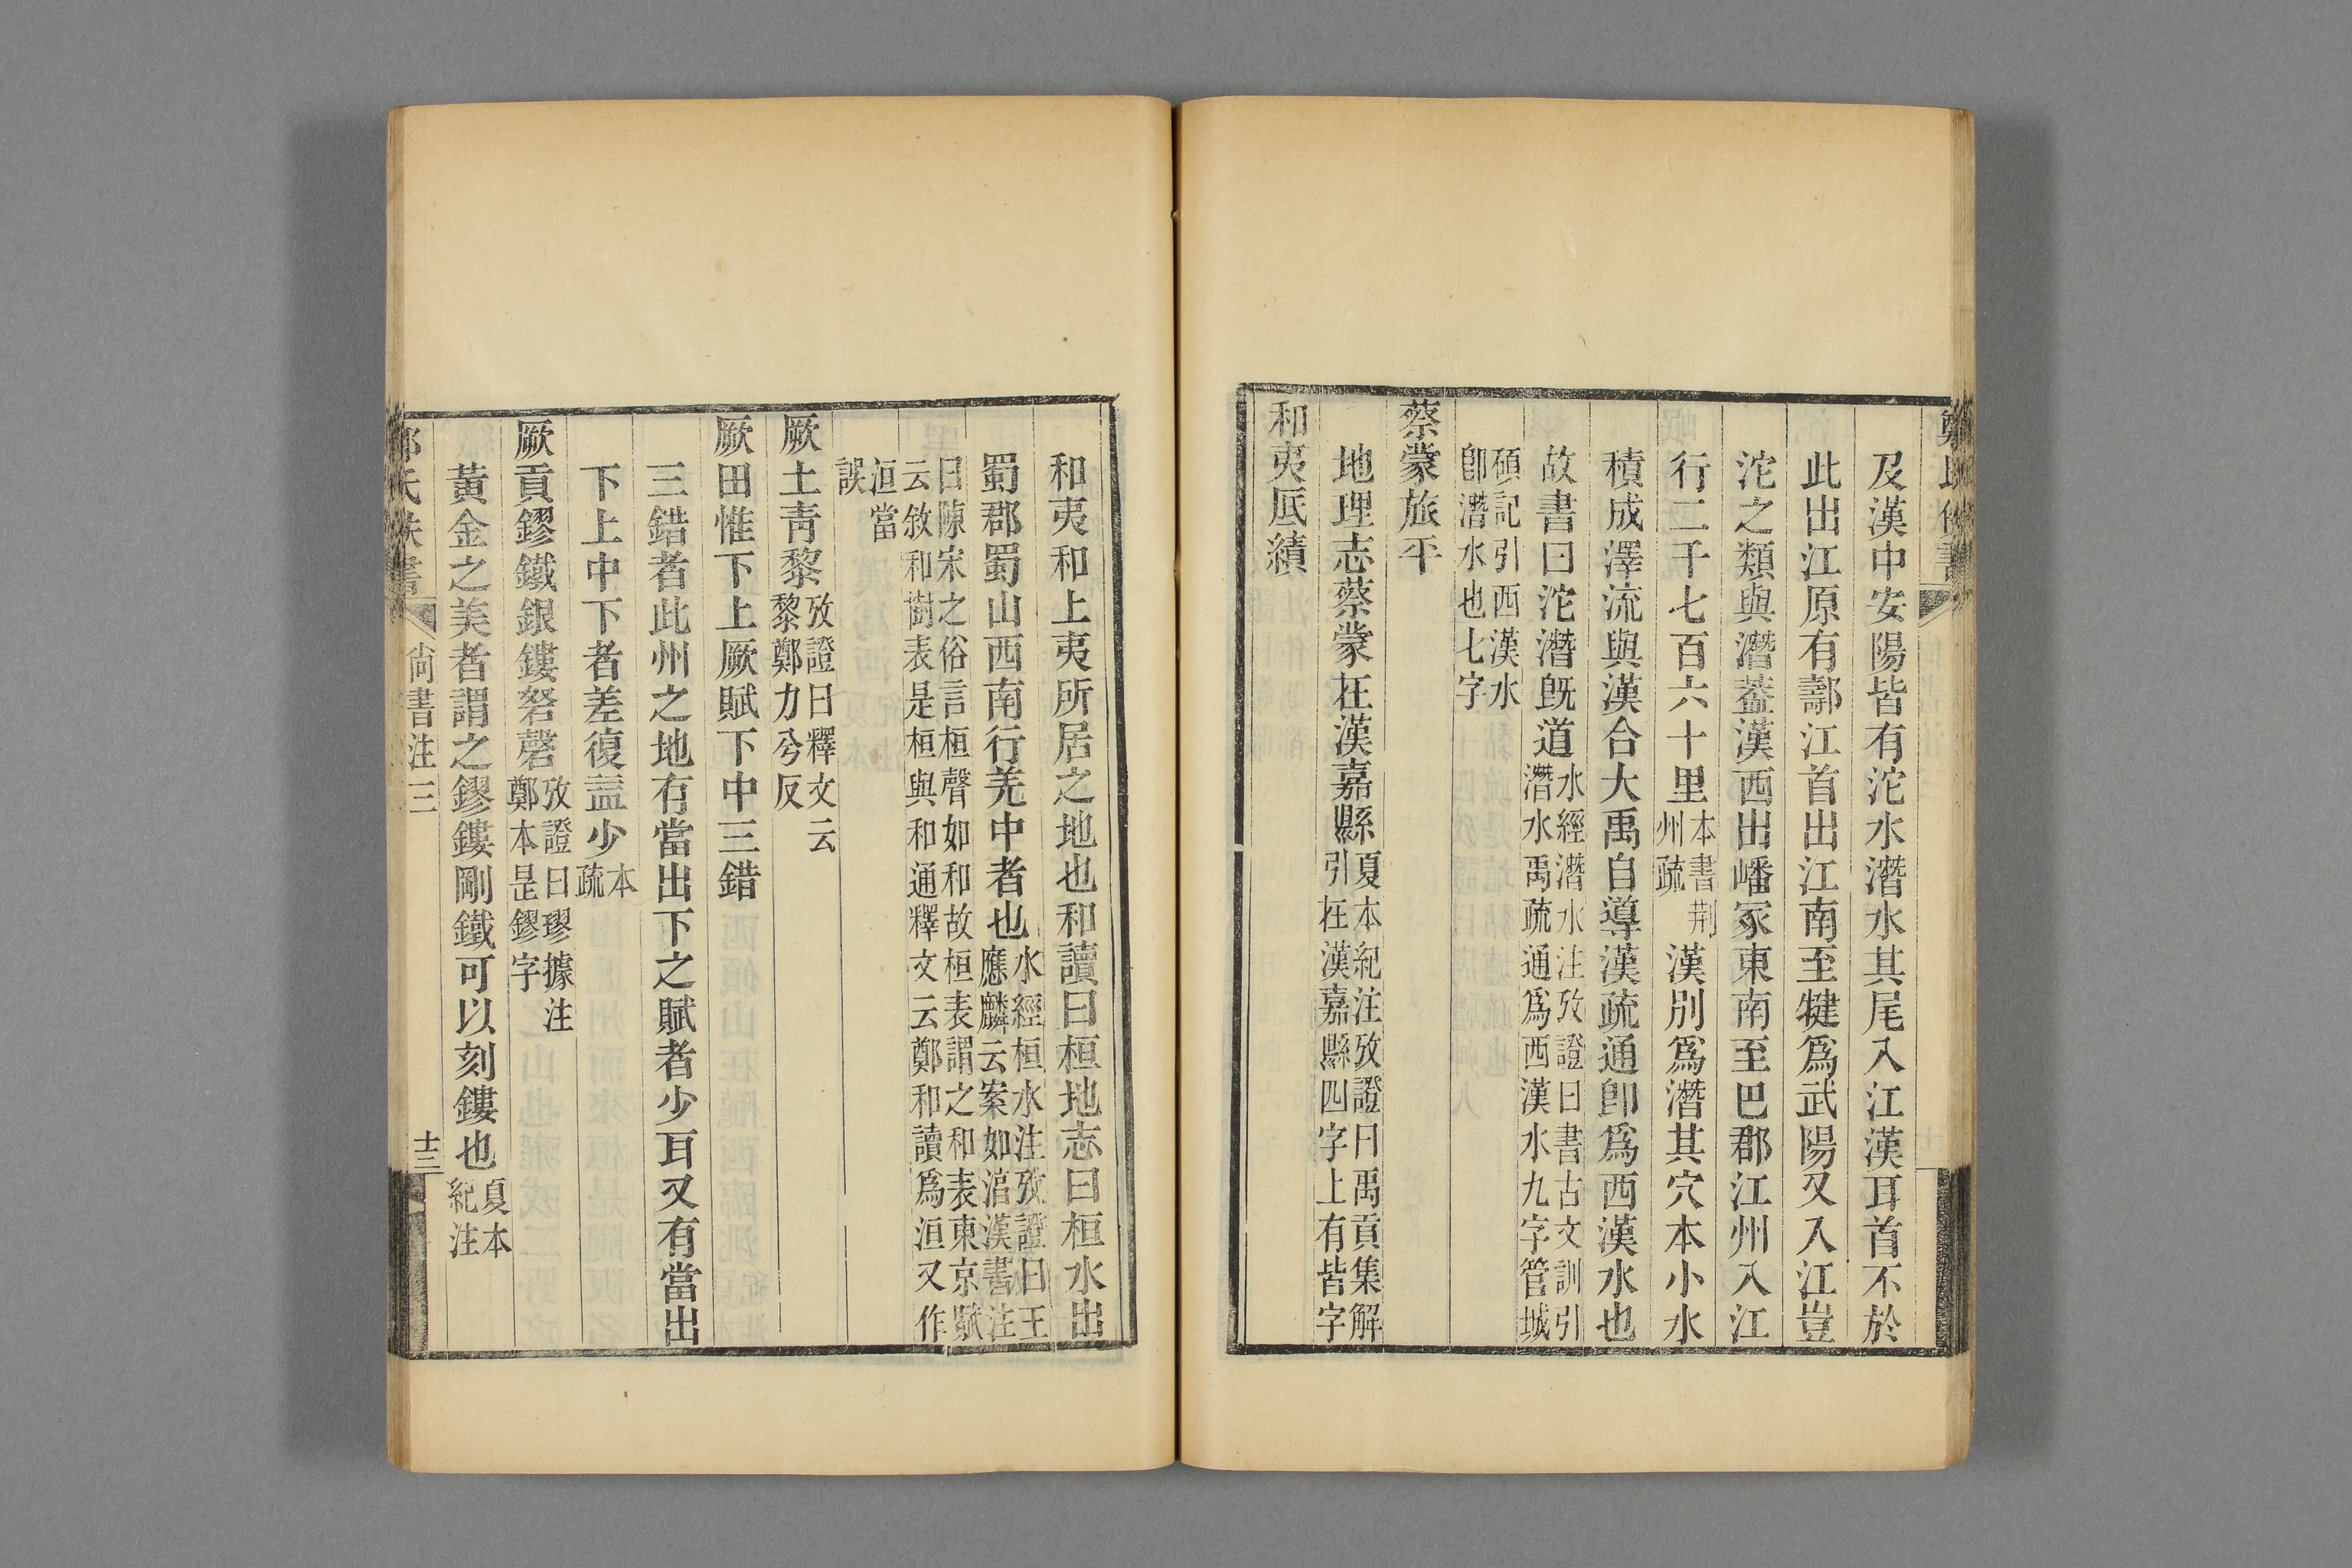 及漢中安陽皆有沱水潛水其尾入江漢耳首不於
此出江原有䣕江首出江南至犍爲武陽又入江豈
沱之類與潛葢漢西出嶓冢東南至巴郡江州入江
行二千七百六十里本書荆州疏漢別爲潛其穴本小水
積成澤流與漢合大禹自導漢疏通卽爲西漢水也
故書曰沱潛旣道水經潛水注攷證曰書古文訓引潛水禹疏通爲西漢水九字管城
碩記引西漢水卽潛水也七字
蔡蒙旅平
地理志蔡蒙在漢嘉縣夏本紀注攷證曰禹貢集解引在漢嘉縣四字上有皆字
和夷厎績
和夷和上夷所居之地也和讀曰桓地志曰桓水出
蜀郡蜀山西南行羌中者也水經桓水注攷證曰王應麟云案如淳漢書注
曰陳宋之俗言桓聲如和故桓表謂之和表東京賦云敘和樹表是桓與和通釋文云鄭和讀爲洹又作
洹當誤
厥土靑黎攷證曰釋文云黎鄭力兮反
厥田惟下上厥賦下中三錯
三錯者此州之地有當出下之賦者少耳又有當出
下上中下者差復益少本疏
厥貢鏐鐵銀鏤砮磬攷證曰璆據注鄭本是鏐字
黃金之美者謂之鏐鏤剛鐵可以刻鏤也夏本紀注
氏佚書
尙書注三
十三